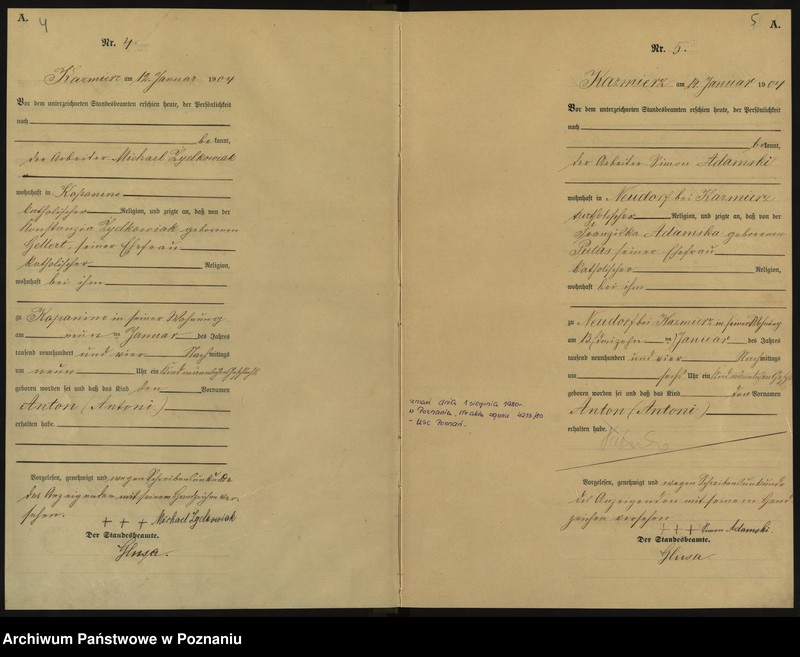 A. 4
Nr. 4.
Kazmierz am 12. Januar 1904
Vor dem unterzeichneten Standesbeamten erschien heute, der Persönlichkeit
nach
bekannt,
der Arbeiter Michael Zydkowiak
wohnhaft in Kopanino
katholischer Religion, und zeigte an, daß von der
Konstanzia Zydkowiak geborenen
Gellert, seiner Ehefrau
katholischer Religion,
wohnhaft bei ihm
zu Kopanino in seiner Wohnung
am neunten Januar des Jahres
tausend neunhundert und vier Nachmittags
um neun Uhr ein Kind männlichen Geschlechts
geboren worden sei und daß das Kind den Vornamen
Anton (Antoni)
erhalten habe.
Vorgelesen, genehmigt und wegen Schreibensunkunde
des Anzeigenden mit seinem Handzeichen ver-
sehen.
+ + + Michael Zydkowiak
Der Standesbeamte.
Glusa.
5 A.
Nr. 5.
Kazmierz am 14. Januar 1904
Vor dem unterzeichneten Standesbeamten erschien heute, der Persönlichkeit
nach
bekannt,
der Arbeiter Simon Adamski
wohnhaft in Neudorf bei Kazmierz
katholischer Religion, und zeigte an, daß von der
Franziska Adamska geborenen
seiner Ehefrau
katholischer Religion,
wohnhaft bei ihm
zu Neudorf bei Kazmierz in seiner Wohnung
am dreizehnten Januar des Jahres
tausend neunhundert und vier Nachmittags
um sechs Uhr ein Kind männlichen Geschl
geboren worden sei und daß das Kind den Vornamen
Anton (Antoni)
erhalten habe.
Vorgelesen, genehmigt und wegen Schreibensunkunde
des Anzeigenden mit seinem Hand
zeichen versehen
+ + + Simon Adamski.
Der Standesbeamte.
Glusa
zmarł dnia 1 sierpnia 1980
w Poznaniu, Nr aktu zgonu 4273/80
- USC Poznań.
Archiwum Państwowe w Poznaniu